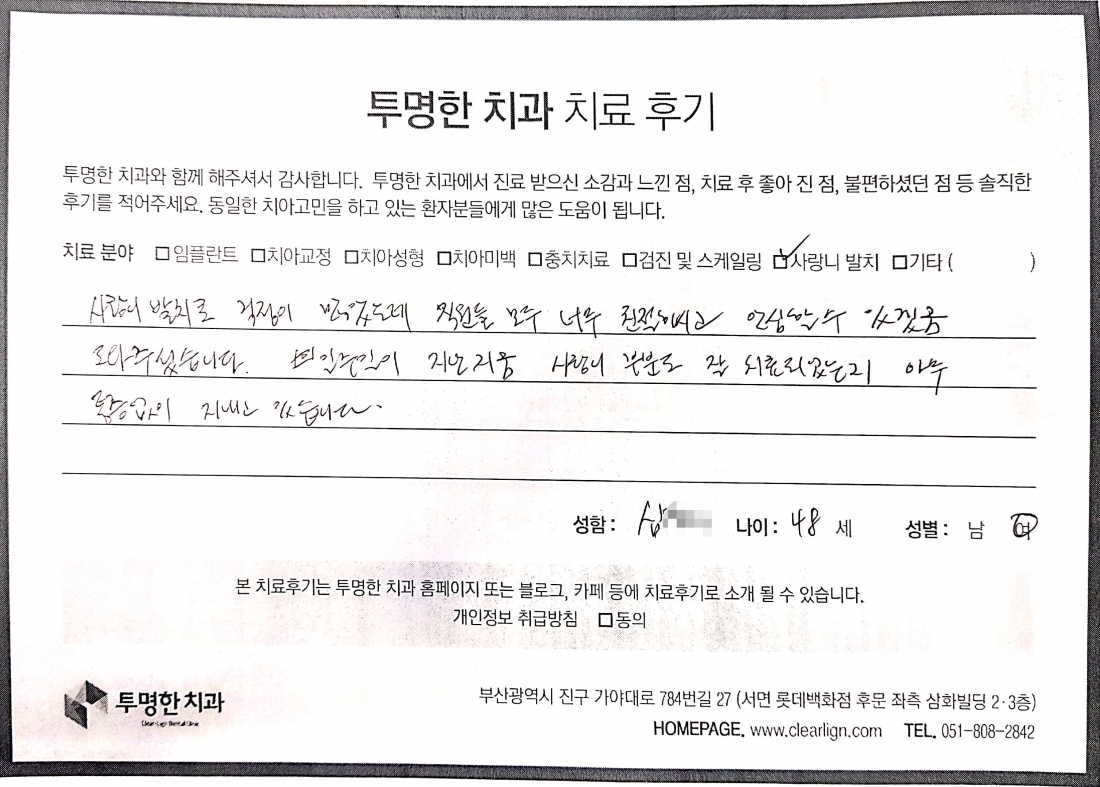 투명한 치과 치료 후기
투명한 치과와 함께 해주셔서 감사합니다. 투명한 치과에서 진료 받으신 소감과 느낀 점, 치료 후 좋아 진 점, 불편하셨던 점 등 솔직한
후기를 적어주세요. 동일한 치아고민을 하고 있는 환자분들에게 많은 도움이 됩니다.
치료 분야 □임플란트 □치아교정 □치아성형 □치아미백 □충치치료 □검진 및 스케일링 ☑사랑니 발치 □기타 ( )
사랑니 발치로 걱정이 많았는데 직원들 모두 너무 친절하시고 안심할수 있게끔
도와주셨습니다. 일주일이 지난지금 사랑니 부분도 잘 치료되었는지 아무
통증없이 지내고 있습니다.
성함 : 나이 : 48 세 성별 : 남 여
본 치료후기는 투명한 치과 홈페이지 또는 블로그, 카페 등에 치료후기로 소개 될 수 있습니다.
개인정보 취급방침 □동의
투명한 치과
부산광역시 진구 가야대로 784번길 27 (서면 롯데백화점 후문 좌측 삼화빌딩 2·3층)
HOMEPAGE. www.clearlign.com TEL. 051-808-2842